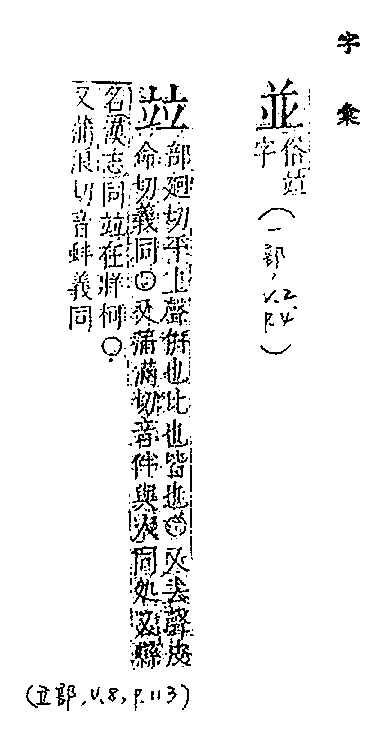 字彙
並 俗竝字
(一部, V.2 P.4)
竝 部廻切平上聲併也比也皆也○又去聲皮
命切義同○又蒲滿切音伴與次同処又縣
名漢志同竝在牂柯○
又蒲浪切音蚌義同
(立部, V.8, P.113)